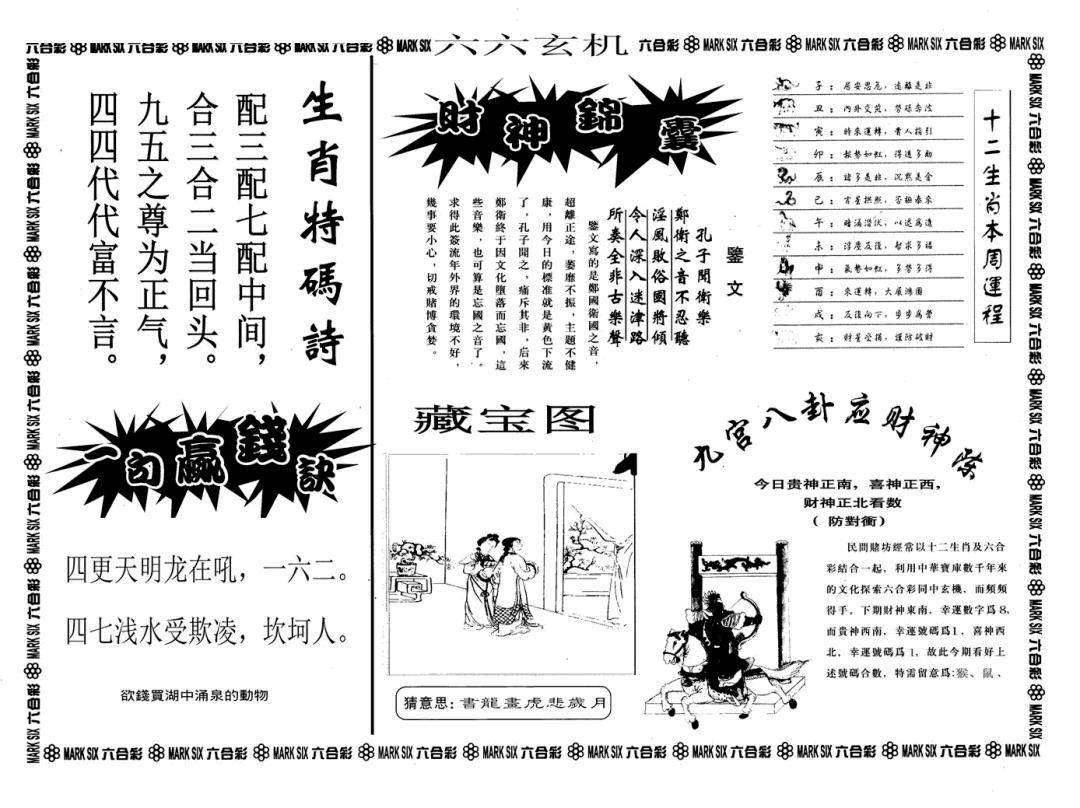 六合彩 MARK SIX 六合彩 MARK SIX 六合彩 MARK SIX 六合彩 MARK SIX 六六玄机 六合彩 MARK SIX 六合彩 MARK SIX 六合彩 MARK SIX 六合彩 MARK SIX
生肖特碼詩
配三配七配中间，
合三合二当回头。
九五之尊为正气，
四四代代富不言。
一句贏錢訣
四更天明龙在吼，一六二。
四七浅水受欺凌，坎坷人。
欲錢買湖中涌泉的動物
財神錦囊
鑒文
孔子聞衛樂
鄭衛之音不忍聽
淫風敗俗國將傾
令人深入迷津路
所奏全非古樂聲
鑒文寫的是鄭國衛國之音，
超離正途，萎靡不振，主題不健
康，用今日的標准就是黃色下流
了，孔子聞之，痛斥其非，后來
鄭衛終于因文化墮落而忘國，這
些音樂，也可算是忘國之音了。
求得此簽流年外界的環境不好，
幾事要小心，切戒賭博貪婪。
十二生肖本周運程
子：居安思危，遠離是非
丑：內外交荒，勞碌奔波
寅：時來運轉，貴人指引
卯：報勢如虹，得道多助
辰：諸多是非，沉默是金
巳：吉星拱照，否極泰來
午：暗涌潛伏，以退為進
未：浮塵反復，智求多福
申：氣勢如虹，多勞多得
酉：來運轉，大展鴻圖
戌：反復向下，步步為營
亥：財星受損，謹防破財
藏宝图
猜意思：書龍畫虎悲歲月
九宮八卦应财神
今日贵神正南，喜神正西，
财神正北看数
（防對衝）
民間賭坊經常以十二生肖及六合
彩結合一起，利用中華寶庫數千年來
的文化探索六合彩同中玄機，而頻頻
得手。下期財神東南，幸運數字爲8，
而貴神西南，幸運號碼爲1，喜神西
北，幸運號碼爲1，故此今期看好上
述號碼合數，特需留意爲:猴、鼠、
MARK SIX 六合彩 MARK SIX 六合彩 MARK SIX 六合彩 MARK SIX 六合彩 MARK SIX 六合彩 MARK SIX 六合彩 MARK SIX 六合彩 MARK SIX 六合彩 MARK SIX 六合彩 MARK SIX